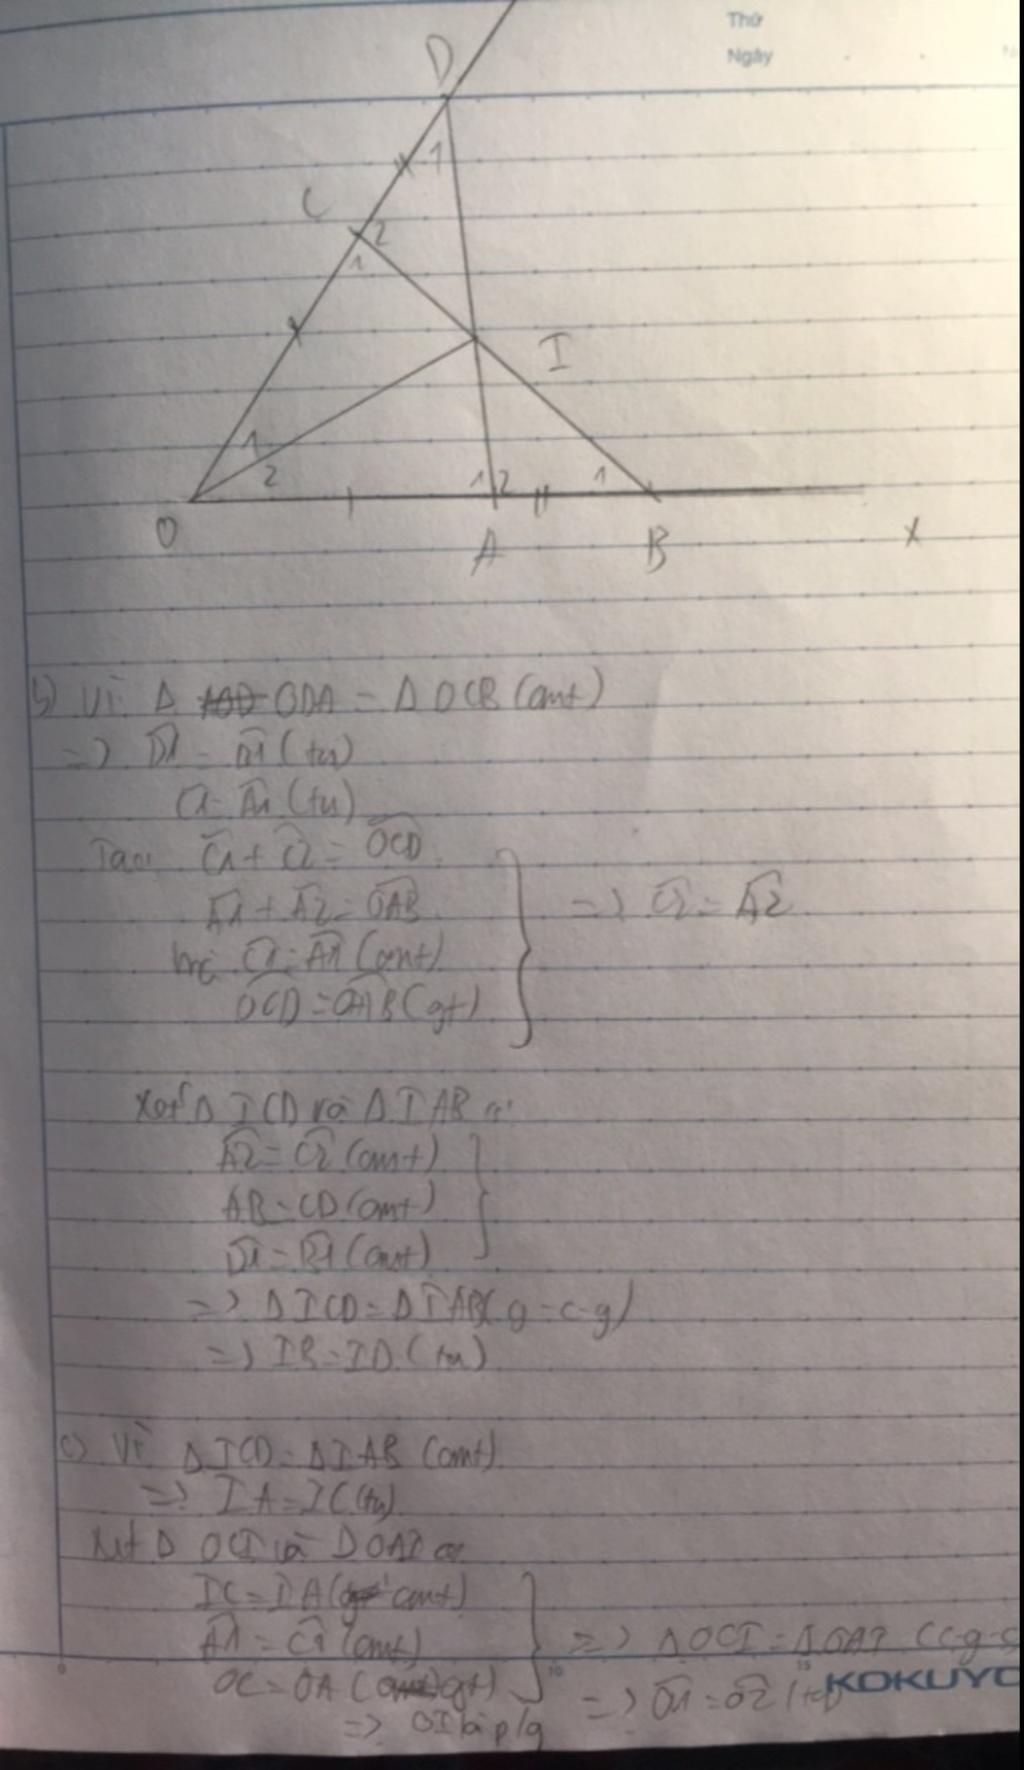 Thứ
Ngày
D
1
C
2
1
I
1
2
1 2
1
O
A
B
x
b) Vì Δ ODA = Δ OCB (cmt)
=> D1 = B1 (tu)
C1 = A1 (tu)
Ta có C1 + C2 = OCD
A1 + A2 = OAB
mà C1 = A1 (cmt)
OCD = OAB (gt)
=> C2 = A2
Xét Δ ICD và Δ IAB có
A2 = C2 (cmt)
AB = CD (cmt)
D1 = B1 (cmt)
=> Δ ICD = Δ IAB (g-c-g)
=> IB = ID (tu)
c) Vì Δ ICD = Δ IAB (cmt)
=> IA = IC (tu)
Xét Δ OCI và Δ OAI có
IC = IA (cmt)
A1 = C1 (cmt)
OC = OA (gt)
=> Δ OCI = Δ OAI (c-g-c
=> O1 = O2 (tu)
=> OI là p/g
10
15
KOKUYO